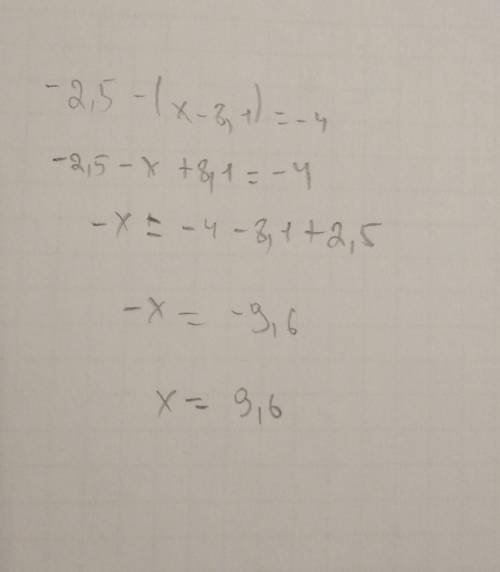 -2,5 - (x - 8,1) = -4
-2,5 - x + 8,1 = -4
-x = -4 - 8,1 + 2,5
-x = -9,6
x = 9,6